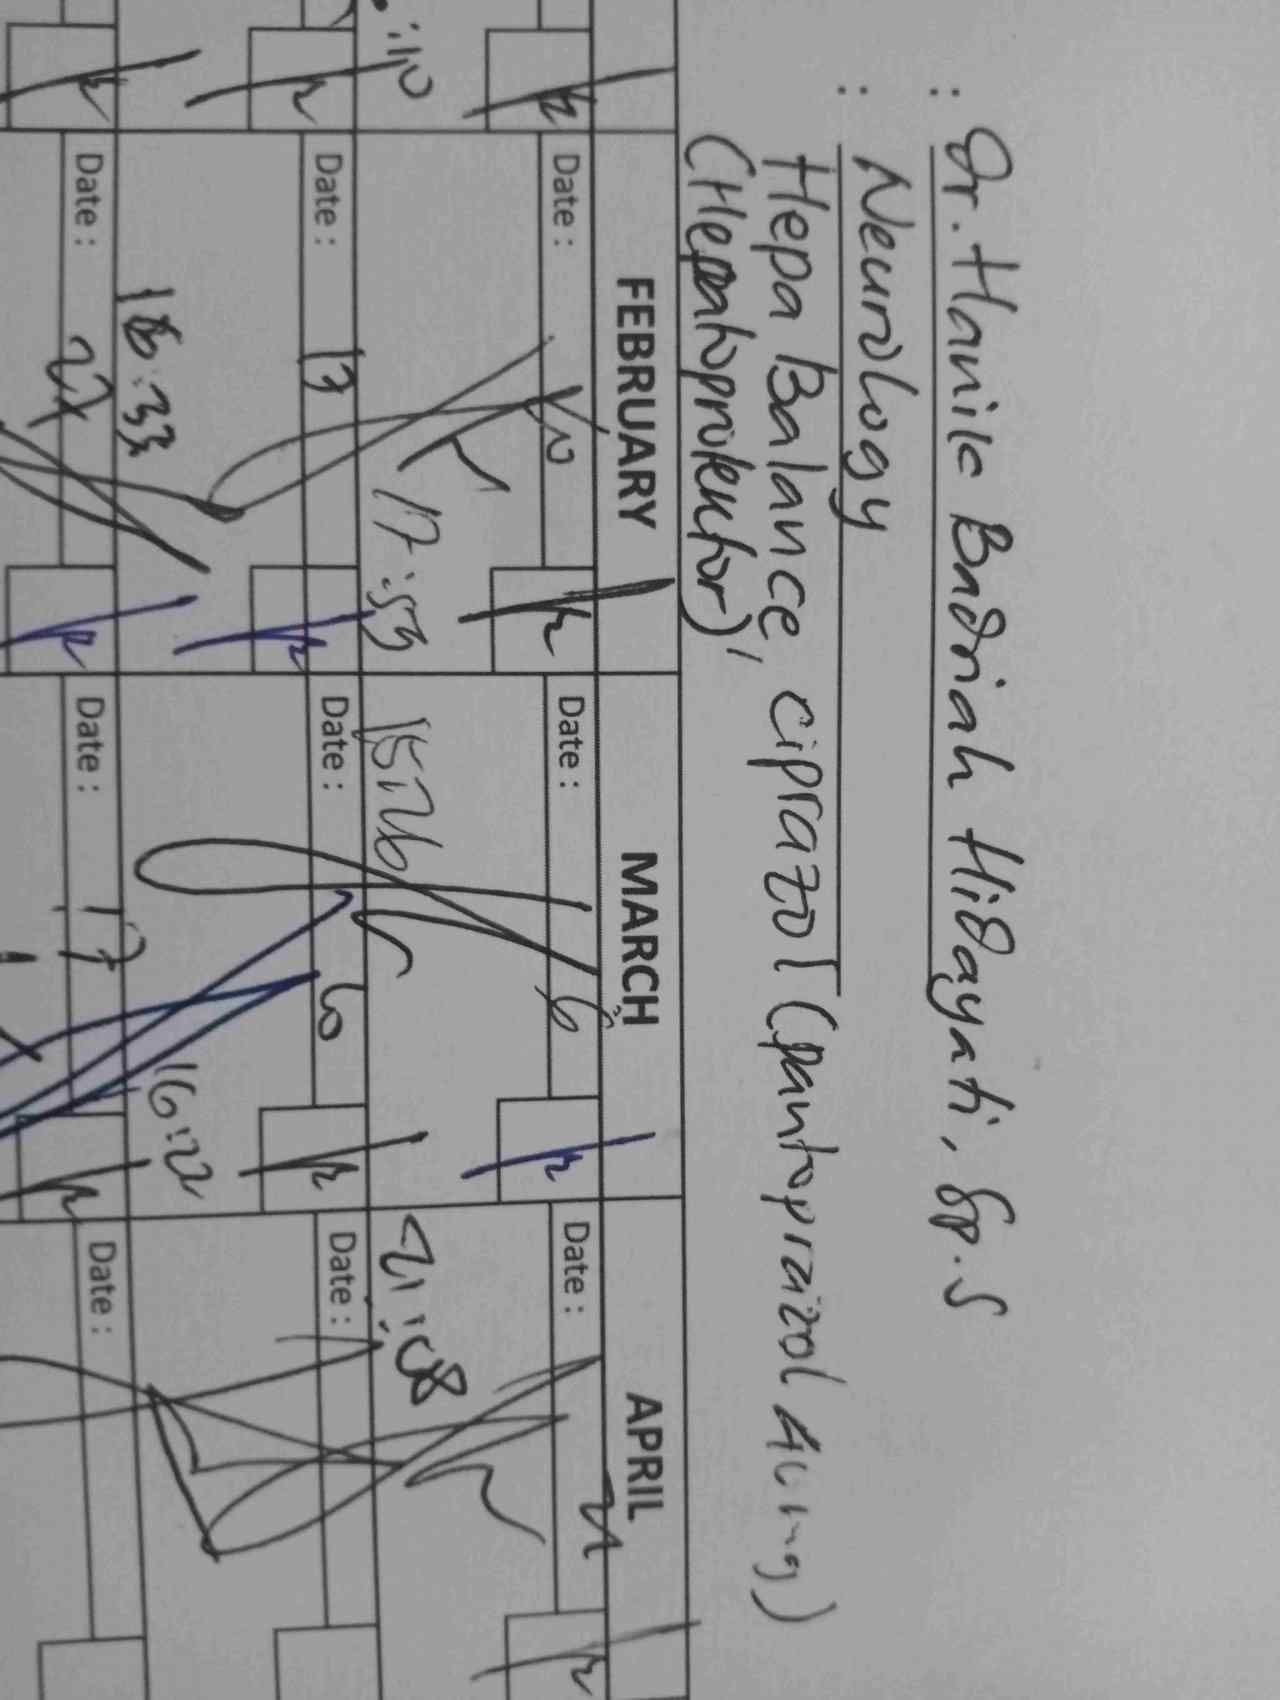 : Dr. Hanik Badriah Hidayati, Sp.S
: Neurology
Hepa Balance, Ciprazol (pantoprazol 40 mg)
(Hepatoprotektor),
FEBRUARY MARCH APRIL
Date : Date : 6 Date : 21
:10 17:53 15:26 21:08
Date : 13 Date : 6 Date :
18:33 16:22
Date : 27 Date : 17 Date :